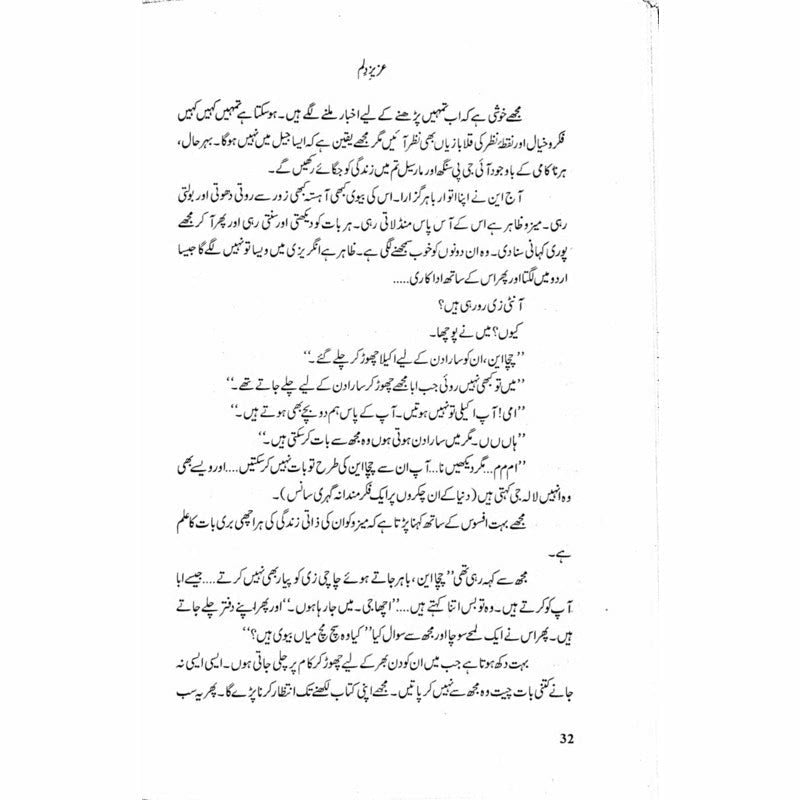 عزیزِ دلم
مجھے خوشی ہے کہ اب تمہیں پڑھنے کے لیے اخبار ملنے لگے ہیں۔ ہوسکتا ہے تمہیں کہیں کہیں
فکر و خیال اور نقطۂ نظر کی قلابازیاں بھی نظر آئیں مگر مجھے یقین ہے کہ ایسا جیل میں نہیں ہوگا۔ بہرحال،
ہر ناکامی کے باوجود آئی جی پی سنگھ اور مارسیل تم میں زندگی کو جگائے رکھیں گے۔
آج این نے اپنا اتوار باہر گزارا۔ اس کی بیوی کبھی آہستہ کبھی زور سے روتی دھوتی اور بولتی
رہی۔ میزو ظاہر ہے اس کے آس پاس منڈلاتی رہی۔ ہر بات کو دیکھتی اور سنتی رہی اور پھر آ کر مجھے
پوری کہانی سنا دی۔ وہ ان دونوں کو خوب سمجھنے لگی ہے۔ ظاہر ہے انگریزی میں ویسا تو نہیں لگے گا جیسا
اردو میں لگتا اور پھر اس کے ساتھ اداکاری.....
آنٹی زی رو رہی ہیں؟
کیوں؟ میں نے پوچھا۔
”چچا این، ان کو سارا دن کے لیے اکیلا چھوڑ کر چلے گئے۔“
”میں تو کبھی نہیں روئی جب ابا مجھے چھوڑ کر سارا دن کے لیے چلے جاتے تھے۔“
”امی! آپ اکیلی تو نہیں ہوتیں۔ آپ کے پاس ہم دو بچے بھی ہوتے ہیں۔“
”ہاں ں ں۔ مگر میں سارا دن ہوتی ہوں وہ مجھ سے بات کر سکتی ہیں۔“
”ام م م... مگر دیکھیں نا... آپ ان سے چچا این کی طرح تو بات نہیں کر سکتیں.... اور ویسے بھی
وہ انہیں لالہ جی کہتی ہیں (دنیا کے ان چکروں پر ایک فکرمندانہ گہری سانس)۔
مجھے بہت افسوس کے ساتھ کہنا پڑتا ہے کہ میزو کو ان کی ذاتی زندگی کی ہر اچھی بری بات کا علم
ہے۔
مجھ سے کہہ رہی تھی ”چچا این، باہر جاتے ہوئے چاچی زی کو پیار بھی نہیں کرتے.... جیسے ابا
آپ کو کرتے ہیں۔ وہ تو بس اتنا کہتے ہیں.... ”اچھا جی۔ میں جا رہا ہوں۔“ اور پھر اپنے دفتر چلے جاتے
ہیں۔ پھر اس نے ایک لمحے سوچا اور مجھ سے سوال کیا ”کیا وہ سچ مچ میاں بیوی ہیں؟“
بہت دکھ ہوتا ہے جب میں ان کو دن بھر کے لیے چھوڑ کر کام پر چلی جاتی ہوں۔ ایسی ایسی نہ
جانے کتنی بات چیت وہ مجھ سے نہیں کر پاتیں۔ مجھے اپنی کتاب لکھنے تک انتظار کرنا پڑے گا۔ پھر یہ سب
32